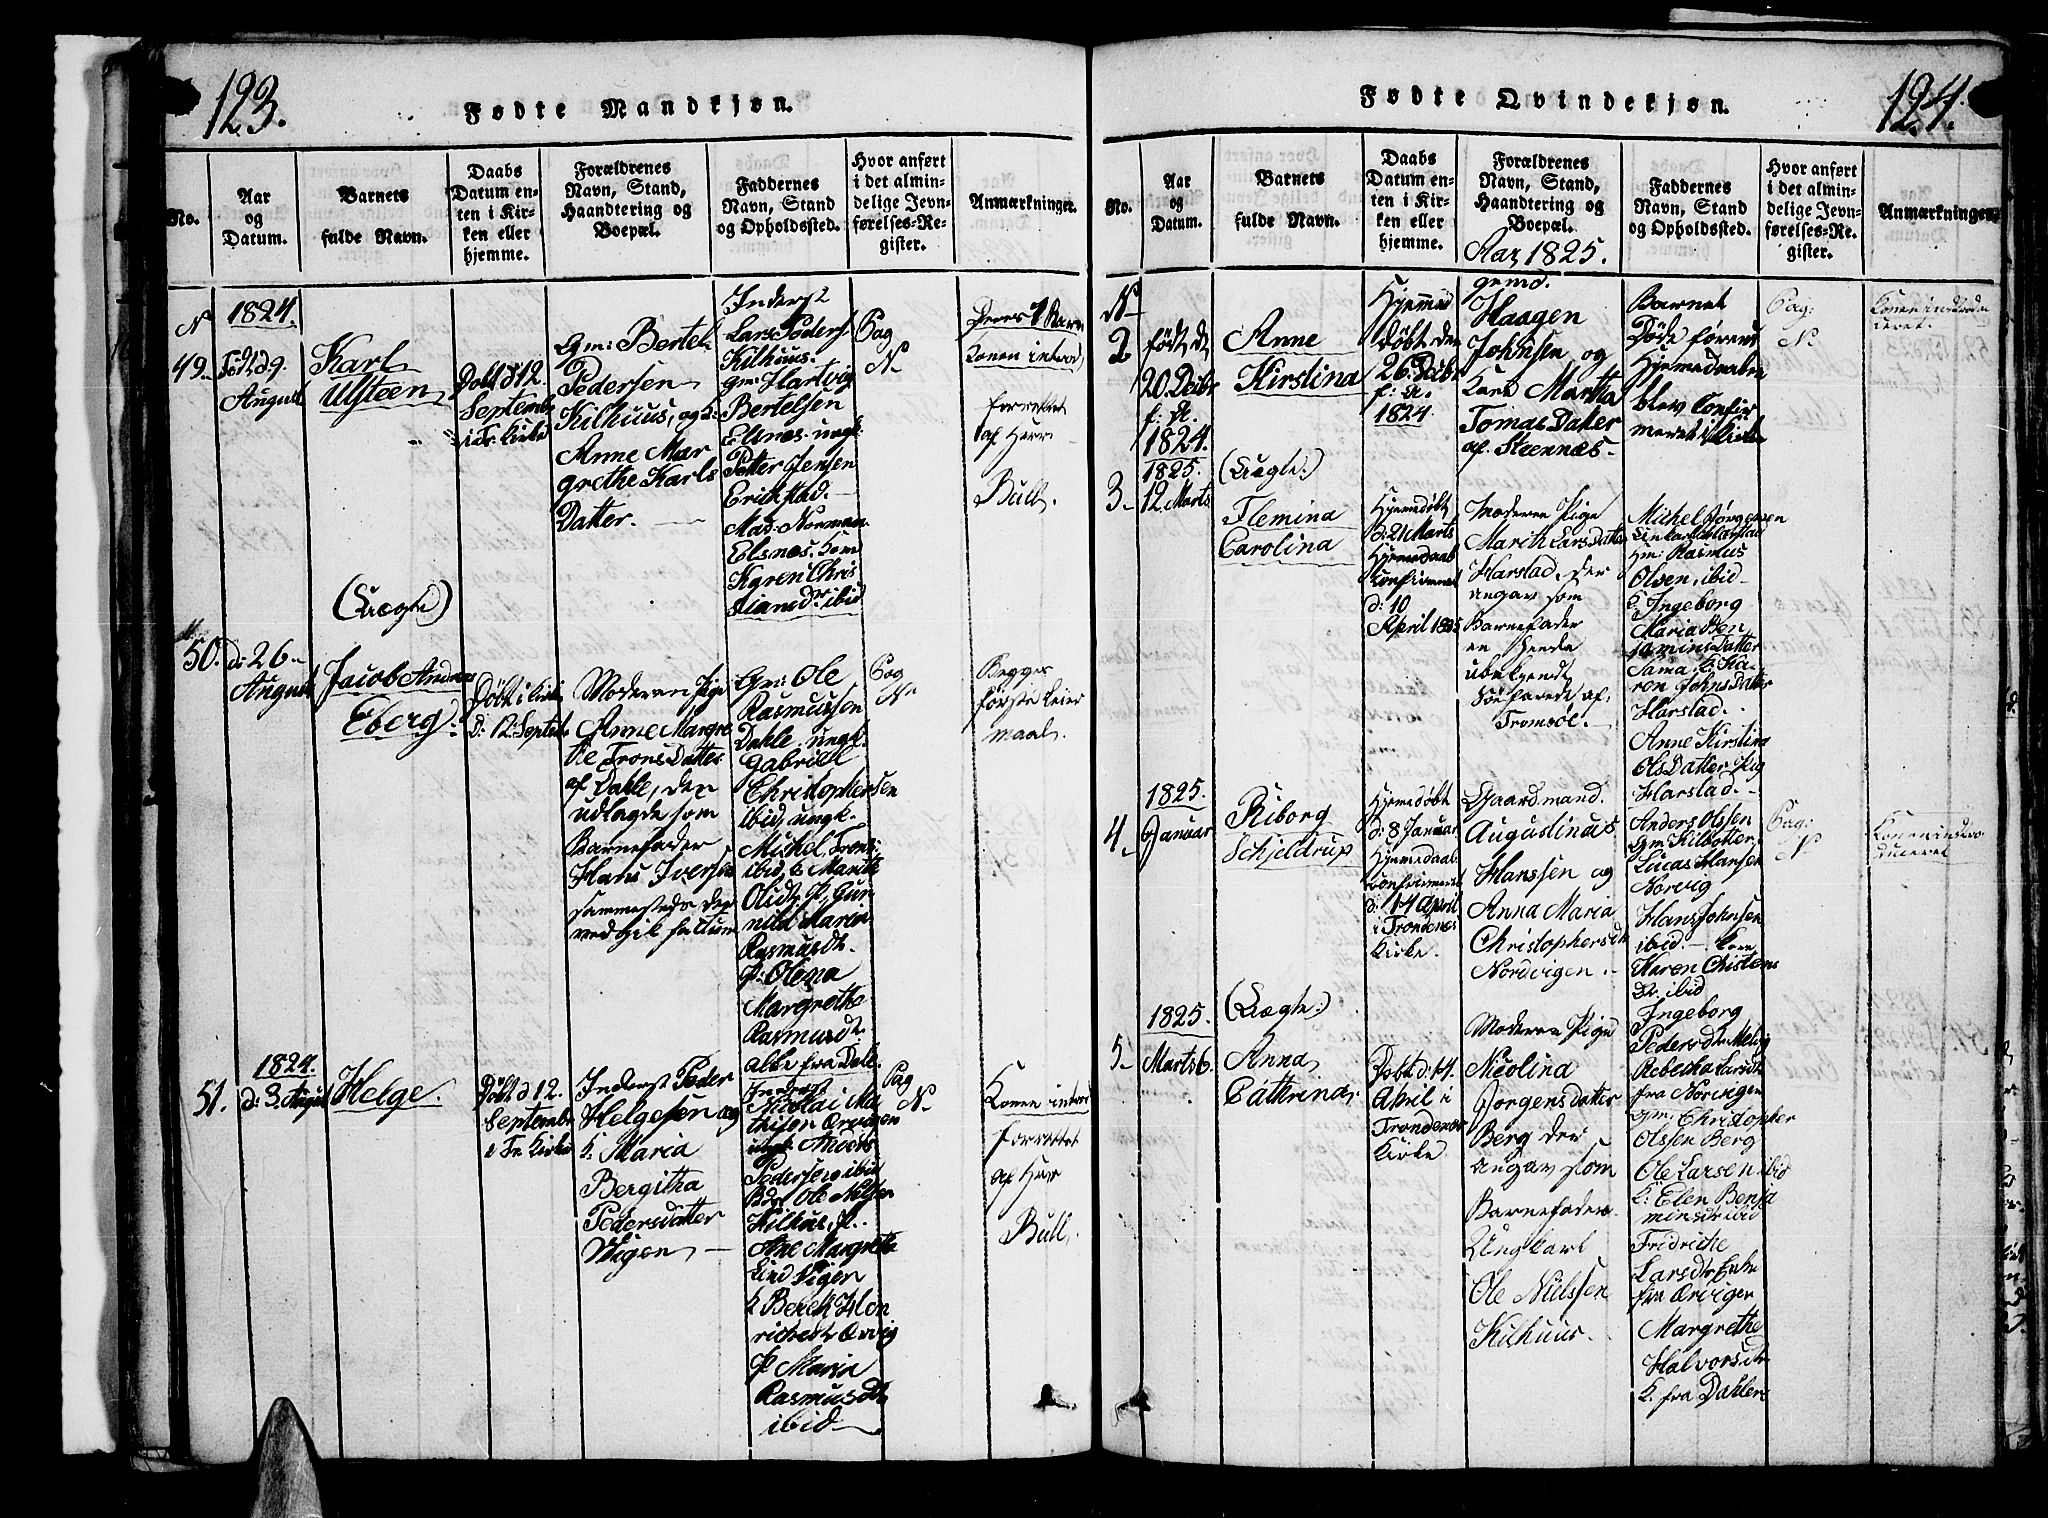 123.
Fødte Mandkjøn.
No.
Aar
og
Datum.
Barnets
fulde Navn.
Daabs
Datum en-
ten i Kir-
ken eller
hjemme.
Forældrenes
Navn, Stand,
Haandtering og
Boepæl.
Faddernes
Navn, Stand
og Opholdssted.
Hvor anført
i det almin-
delige Jevn-
førelses-Re-
gister.
Anmærkninger.
N
49.
1824.
Født d 9.
August
Karl
Ulsteen
Døbt d 12.
Septemb
i Tr. Kirke
Gm: Bertel
Pedersen
Kilhuus, og k:
Anne Mar
grethe Karls
Datter.
Inderst
Lars Peders
Kilhuus.
gm: Hartvig
Bertelsen
Elsnæs. ungk.
Petter Jensen
Erickstad.
Mad: Norman
Elsnæs. Kom
Karen Chris
tiansdr ibid
Pag
N.
Deres 1 Barn
Konen introd
forrettet
af Herr
Bull.
(Uægte)
50.
d: 26
August
Jacob Andreas
Eberg.
Døbt i Kirke
d: 12 Septbr
Moderen Pige
Anne Margre
the TronsDatter
af Dahle, der
udlagde som
Barnefader
Hans Iversen
sammesteds der
vedgik factum
Gm: Ole
Rasmussen
Dahle, ungk.
Gabriel
Christophersen
ibid, ungk.
Michel Trons:
ibid, k Marith
Olsdt, P. Gun
nild Maria
Rasmusdt.
P: Olena
Margrethe
Rasmusdt.
alle fra Dale.
Pag
N
Begges
første Leier
maal.
51.
1824.
d: 3. August
Helge.
Døbt d 12.
September
i Tr Kirke
Inderst Peder
Helgesen og
k: Maria
Bergitha
Pedersdatter
Wigen
Inderst
Nicolai Ma
thisen Ervigen
Anders
Pedersen ibid
Ole Nilsen
Kilhus, P.
Ane Margrethe
Lind Vigen
k Berek Hen
richsdt Ervig
P Maria
Rasmusdtr
ibid
Pag
N
Konen introd
forrettet
af Herr
Bull.
124.
Fødte Qvindekjøn.
No.
Aar
og
Datum.
Barnets
fulde Navn.
Daabs
Datum en-
ten i Kir-
ken eller
hjemme.
Forældrenes
Navn, Stand,
Haandtering og
Boepæl.
Aar 1825.
Faddernes
Navn, Stand
og Opholdssted.
Hvor anført
i det almin-
delige Jevn-
førelses-Re-
gister.
Anmærkninger.
N
2
født d
20. Decbr
f: A.
1824.
Anne
Kirstina
Hjemme
døbt den
26. Decbr
f: A.
1824
gmd.
Haagen
Johnsen og
Kone Martha
Tomas Datter
af Steennæs.
Barnet
Døde førend
Hjemmedaaben
blev Confir
meret i Kirke
Pag:
N
Konen introdu
ceret.
3
1825.
12 Marts
(Uægte:)
Flemina
Carolina
Hjemedøbt
d: 21 Marts
Hjemedaab
Confirmeret
d: 10
April 1825
Moderen Pige
Marith LarsDatter
Harstad, der
angav som
Barnefader
en hende
ubekjendt
Søefarede af
Tromsöe.
Michel Jørgensen
Harstad
gm: Rasmus
Olsen, ibid
k. Ingeborg
Maria Ben
jamins Datter
Sama, k. Ka
ren Johns Datter
Harstad.
Anne Kirstina
OlsDatter Pig
Harstad.
4
1825.
Januar
Riborg
Schjeldrup
Hjemedøbt
d: 8 Januar
Hjemedaab
Confirmeret
d: 14 April
i Trondenes
Kirke.
Gaardmand.
Augustinus
Hanssen og
Anna Maria
Christophersdt
Nordvigen.
Anders Olssen
gm Kilbotter
Lucas Hansen
Norvig
Hans Johnsen
ibid. kone
Karen Christens
Dr. ibid
Pag:
N
Konen intro
duceret
5
1825.
Marts 6.
(Uægte:)
Anna
Cathrina
Døbt d: 14.
April i
Trondenes
Kirke
Moderen Pige
Nicolina
Jorgensdatter
Berg der
angav som
Barnefader
Ungkarl
Ole Nielssen
Kilhuus.
Ingeborg
Pedersdtr Melvig
Rebecka Larsdt
fra Norvigen
gm: Christopher
Olssen Berg
Ole Larsen ibid
k: Elen Benja
minsdr ibid
Fridriche
Larsdtr Enke
fra Ervigen
Margrethe
Halvorsdtr
k. fra Dahlen